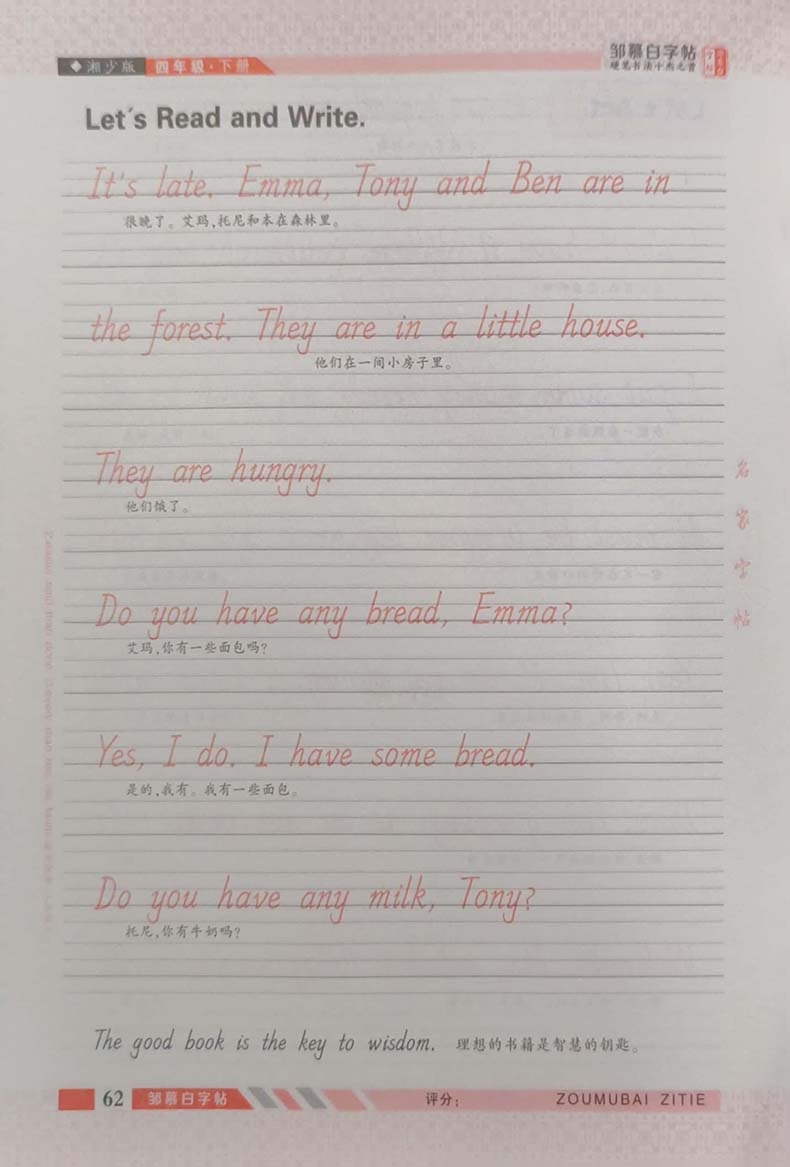 ◆湘少版 四年级·下册
邹慕白字帖
硬笔书法十杰之首
Let's Read and Write.
It's late. Emma, Tony and Ben are in
很晚了。艾玛,托尼和本在森林里。
the forest. They are in a little house.
他们在一间小房子里。
They are hungry.
他们饿了。
Do you have any bread, Emma?
艾玛,你有一些面包吗?
Yes, I do. I have some bread.
是的,我有。我有一些面包。
Do you have any milk, Tony?
托尼,你有牛奶吗?
名家字帖
The good book is the key to wisdom. 理想的书籍是智慧的钥匙。
62 邹慕白字帖 评分: ZOUMUBAI ZITIE